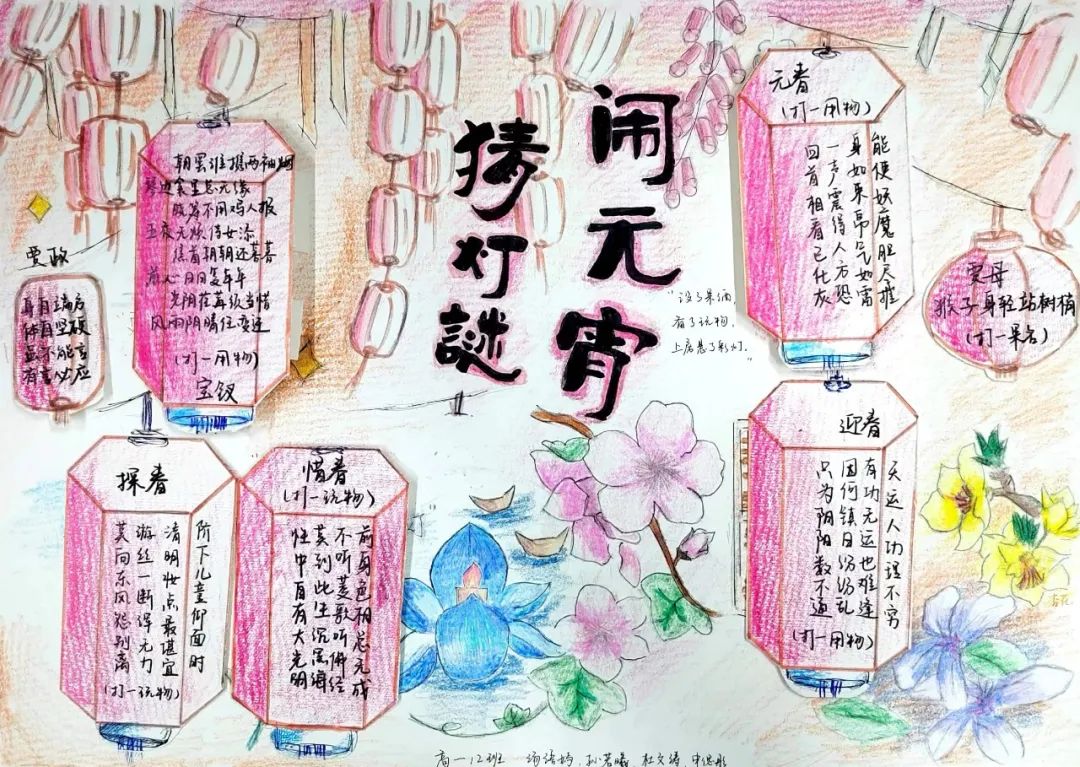 闹元宵
猜灯谜
"设了果酒，
备了玩物，
上房悬了彩灯。"
元春
(打一用物)
能使妖魔胆尽摧
身如束帛气如雷
一声震得人方恐
回首相看已化灰
贾母
猴子身轻站树梢
(打一果名)
迎春
天运人功理不穷
有功无运也难逢
因何镇日纷纷乱
只为阴阳数不通
(打一用物)
朝罢谁携两袖烟
琴边衾里总无缘
晓筹不用鸡人报
五夜无烦侍女添
焦首朝朝还暮暮
煎心日日复年年
光阴荏苒须当惜
风雨阴晴任变迁
(打一用物)
宝钗
贾政
身自端方
体自坚硬
虽不能言
有言必应
探春
阶下儿童仰面时
清明妆点最堪宜
游丝一断浑无力
莫向东风怨别离
(打一玩物)
惜春
(打一玩物)
前身色相总无成
不听菱歌听佛经
莫到此生沉黑海
性中自有大光明
高一12班 孙若曦